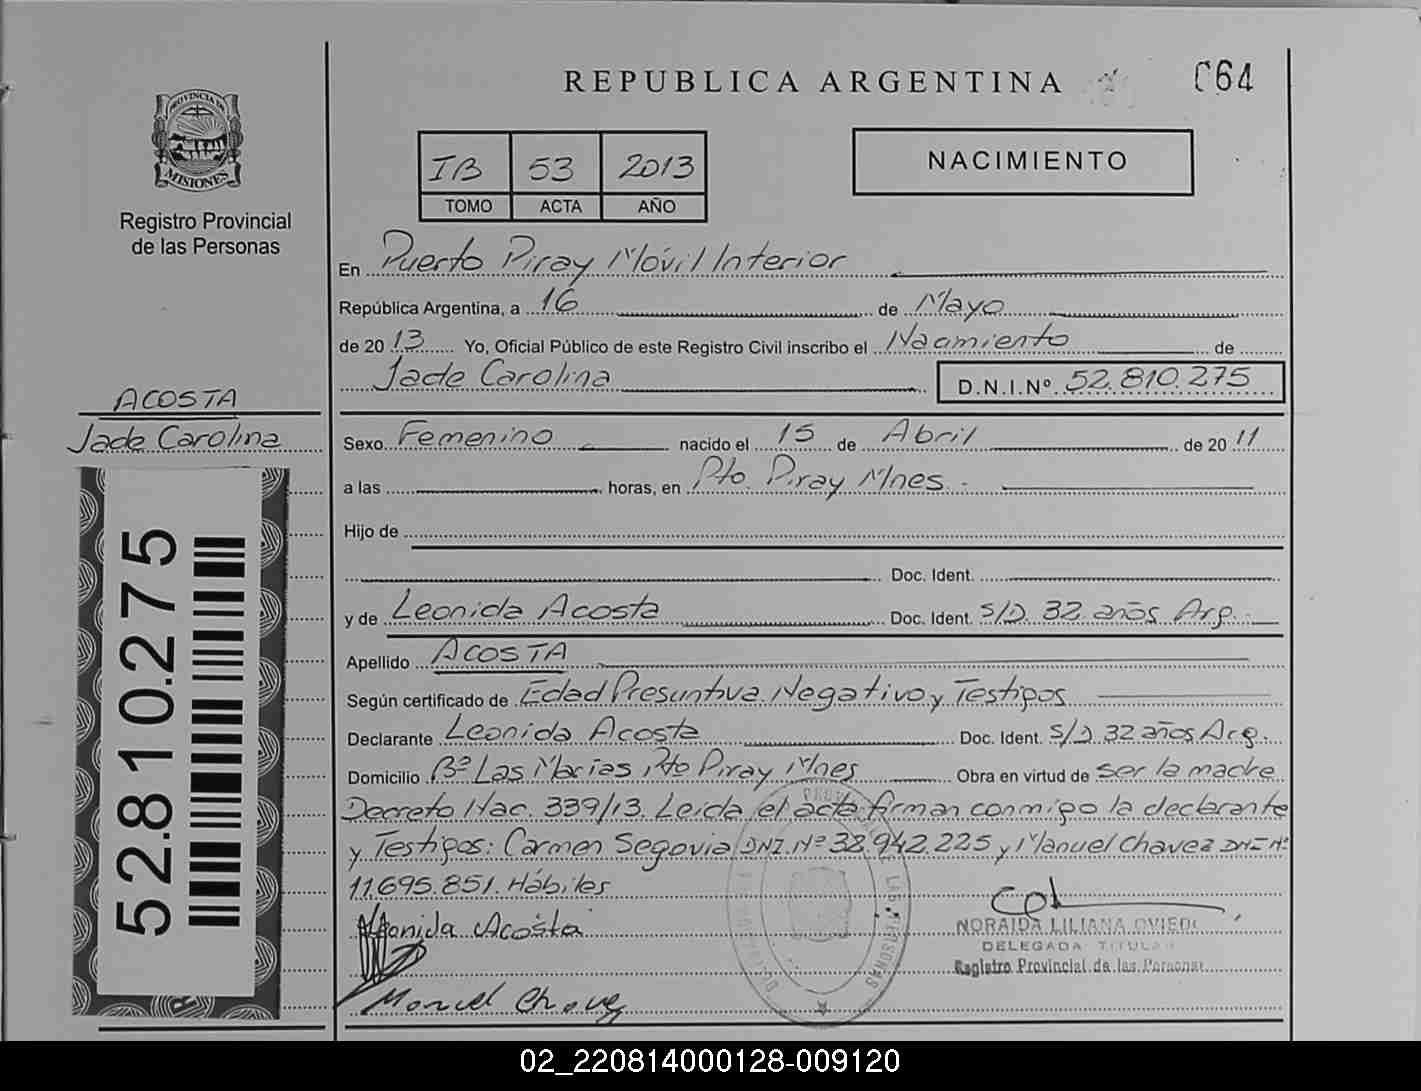 REPUBLICA ARGENTINA
064
PROVINCIA DE
MISIONES
Registro Provincial
de las Personas
IB 53 2013
TOMO ACTA AÑO
NACIMIENTO
En Puerto Piray Móvil Interior
República Argentina, a 16 de Mayo
de 20 13 Yo, Oficial Público de este Registro Civil inscribo el Nacimiento de
Jade Carolina D.N.I.Nº 52.810.275
ACOSTA
Jade Carolina
Sexo Femenino nacido el 15 de Abril de 20 11
a las horas, en Pto. Piray Mnes.
Hijo de
Doc. Ident.
y de Leonida Acosta Doc. Ident. S/D 32 años Arg.
Apellido ACOSTA
Según certificado de Edad Presuntiva. Negativo y Testigos
Declarante Leonida Acosta Doc. Ident. S/D 32 años Arg.
Domicilio Bº Las Marías Pto Piray Mnes Obra en virtud de ser la madre
Decreto Nac. 339/13. Leida el acta firman conmigo la declarante
y Testigos: Carmen Segovia DNI.Nº 32.942.225 y Manuel Chavez DNI Nº
11.695.851. Hábiles
Acosta
NORAIDA LILIANA OVIEDO
DELEGADA TITULAR
Registro Provincial de las Personas
Manuel Chavez
52.810.275
02_220814000128-009120